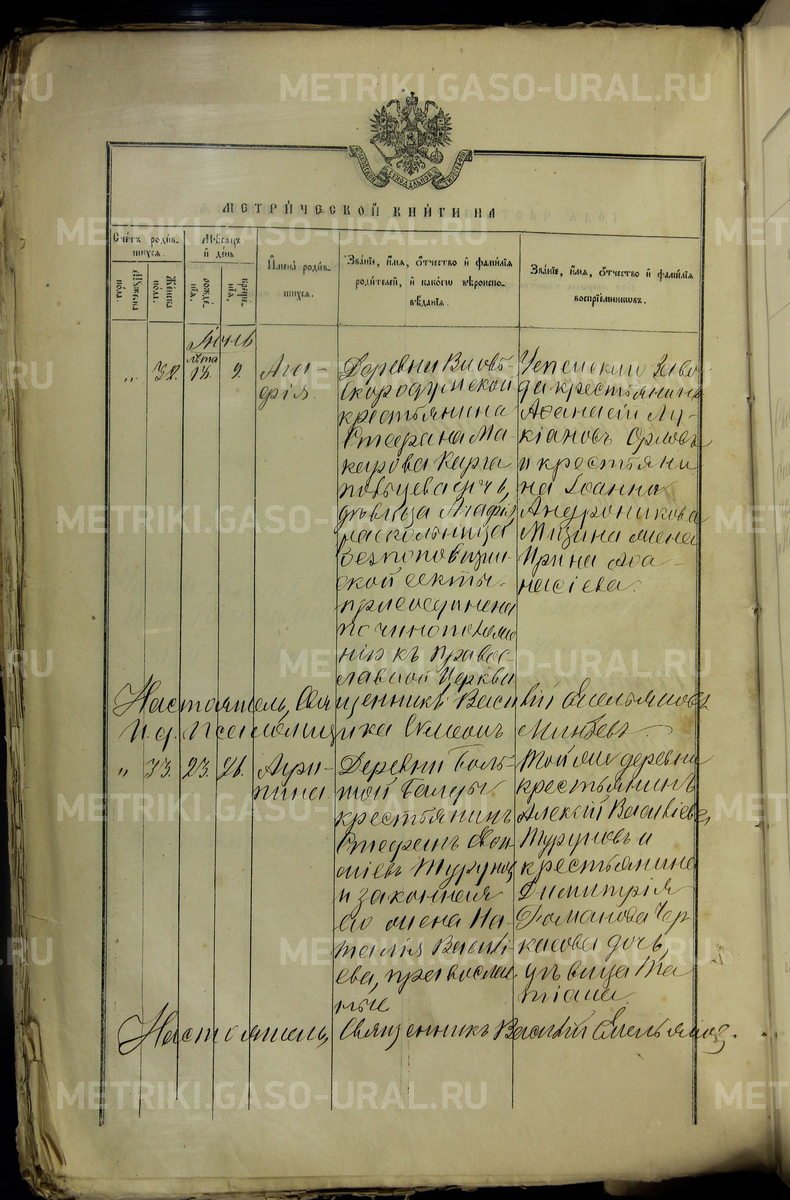 METRIKI.GASO-URAL.RU
МЕТРИ́ЧЕСКОЙ КНИ́ГИ НА
Счетъ родив-
шихся.
Мѣсяцъ
и день
Имена родив-
шихся.
Званіе, имя, отчество и фамилія
родителей, и какого вѣроиспо-
вѣданія.
Званіе, имя, отчество и фамилія
воспріемниковъ.
Мужеска
пола.
Женска
пола.
рожде-
нія.
креще-
нія.
Іюнь
„ 32. лѣта 18. 9. Ага-
фія.
Деревни
Скородумской
крестьянина
Стефана Ма-
карова Карга
польцева дочь,
дѣвица Агафія
раскольница
безпоповщин
ской секты
присоединена
по чиноположе
нію къ Правос-
лавной Церкви
Успенскаго Заво-
да крестьянинъ
Аѳанасій Лу-
кіановъ Орловъ
и крестьяни
на Іоанна
Андроникова
Мизина жена
Ирина Аѳа-
насіева.
Настоятель, Священникъ Василій Емельяновъ
И.д. Псаломщика Симеонъ
„ 33. 23. 26. Агри-
пина
Деревни Боль-
шой
крестьянинъ
Стефанъ
и законная
его жена На-
талія Василі
ева, православ
ные
Той же деревни
крестьянинъ
Алексій Василіевъ
и
крестьянина
Димитрія
Романова Чер
касова дочь,
дѣвица Та
тіана.
Настоятель, Священникъ Василій Емельяновъ.